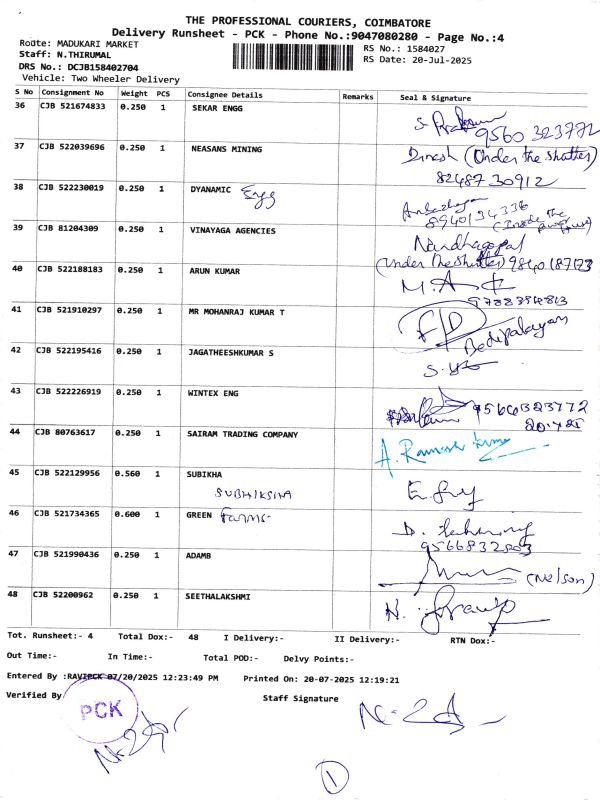 THE PROFESSIONAL COURIERS, COIMBATORE
Delivery Runsheet - PCK - Phone No.:9047080280 - Page No.:4
Route: MADUKARI MARKET
RS No.: 1584027
Staff: N.THIRUMAL
RS Date: 20-Jul-2025
DRS No.: DCJB158402704
Vehicle: Two Wheeler Delivery
S No Consignment No Weight PCS Consignee Details Remarks Seal & Signature
36 CJB 521674833 0.250 1 SEKAR ENGG
9560 323772
37 CJB 522039696 0.250 1 NEASANS MINING Dinesh (Under the shutter)
82487 30912
38 CJB 522230019 0.250 1 DYANAMIC Engg
8940134336
(Inside the
39 CJB 81204309 0.250 1 VINAYAGA AGENCIES Nandhagopal
(Under the shutter) 9840187173
40 CJB 522188183 0.250 1 ARUN KUMAR
41 CJB 521910297 0.250 1 MR MOHANRAJ KUMAR T
42 CJB 522195416 0.250 1 JAGATHEESHKUMAR S
43 CJB 522226919 0.250 1 WINTEX ENG 9566323772
20.7.25
44 CJB 80763617 0.250 1 SAIRAM TRADING COMPANY A. Ramesh Kumar
45 CJB 522129956 0.560 1 SUBIKHA
SUBHIKSHA
46 CJB 521734365 0.600 1 GREEN Farms
9566832803
47 CJB 521990436 0.250 1 ADAMB (Nelson)
48 CJB 52200962 0.250 1 SEETHALAKSHMI
Tot. Runsheet:- 4 Total Dox:- 48 I Delivery:- II Delivery:- RTN Dox:-
Out Time:- In Time:- Total POD:- Delvy Points:-
Entered By :RAVIPCK 07/20/2025 12:23:49 PM Printed On: 20-07-2025 12:19:21
Verified By Staff Signature
PCK
1